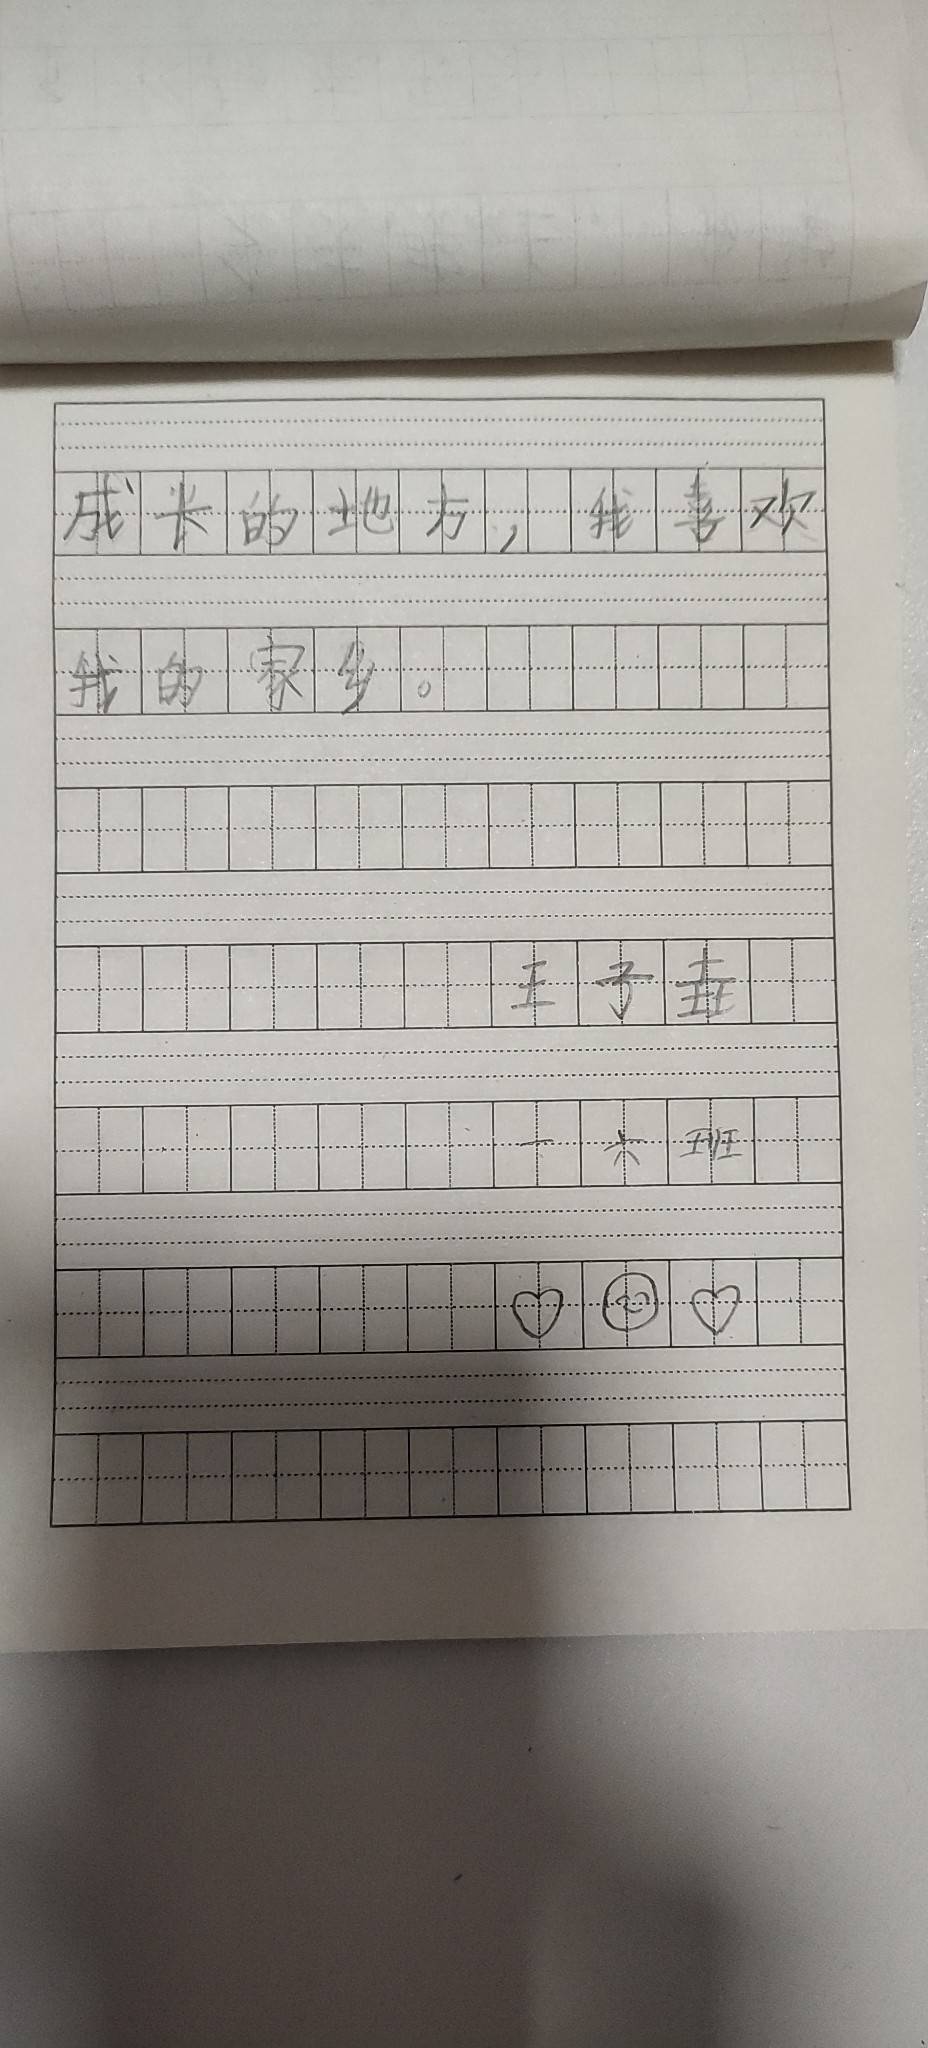 成长的地方，我喜欢
我的家乡。
王子垚
一六班